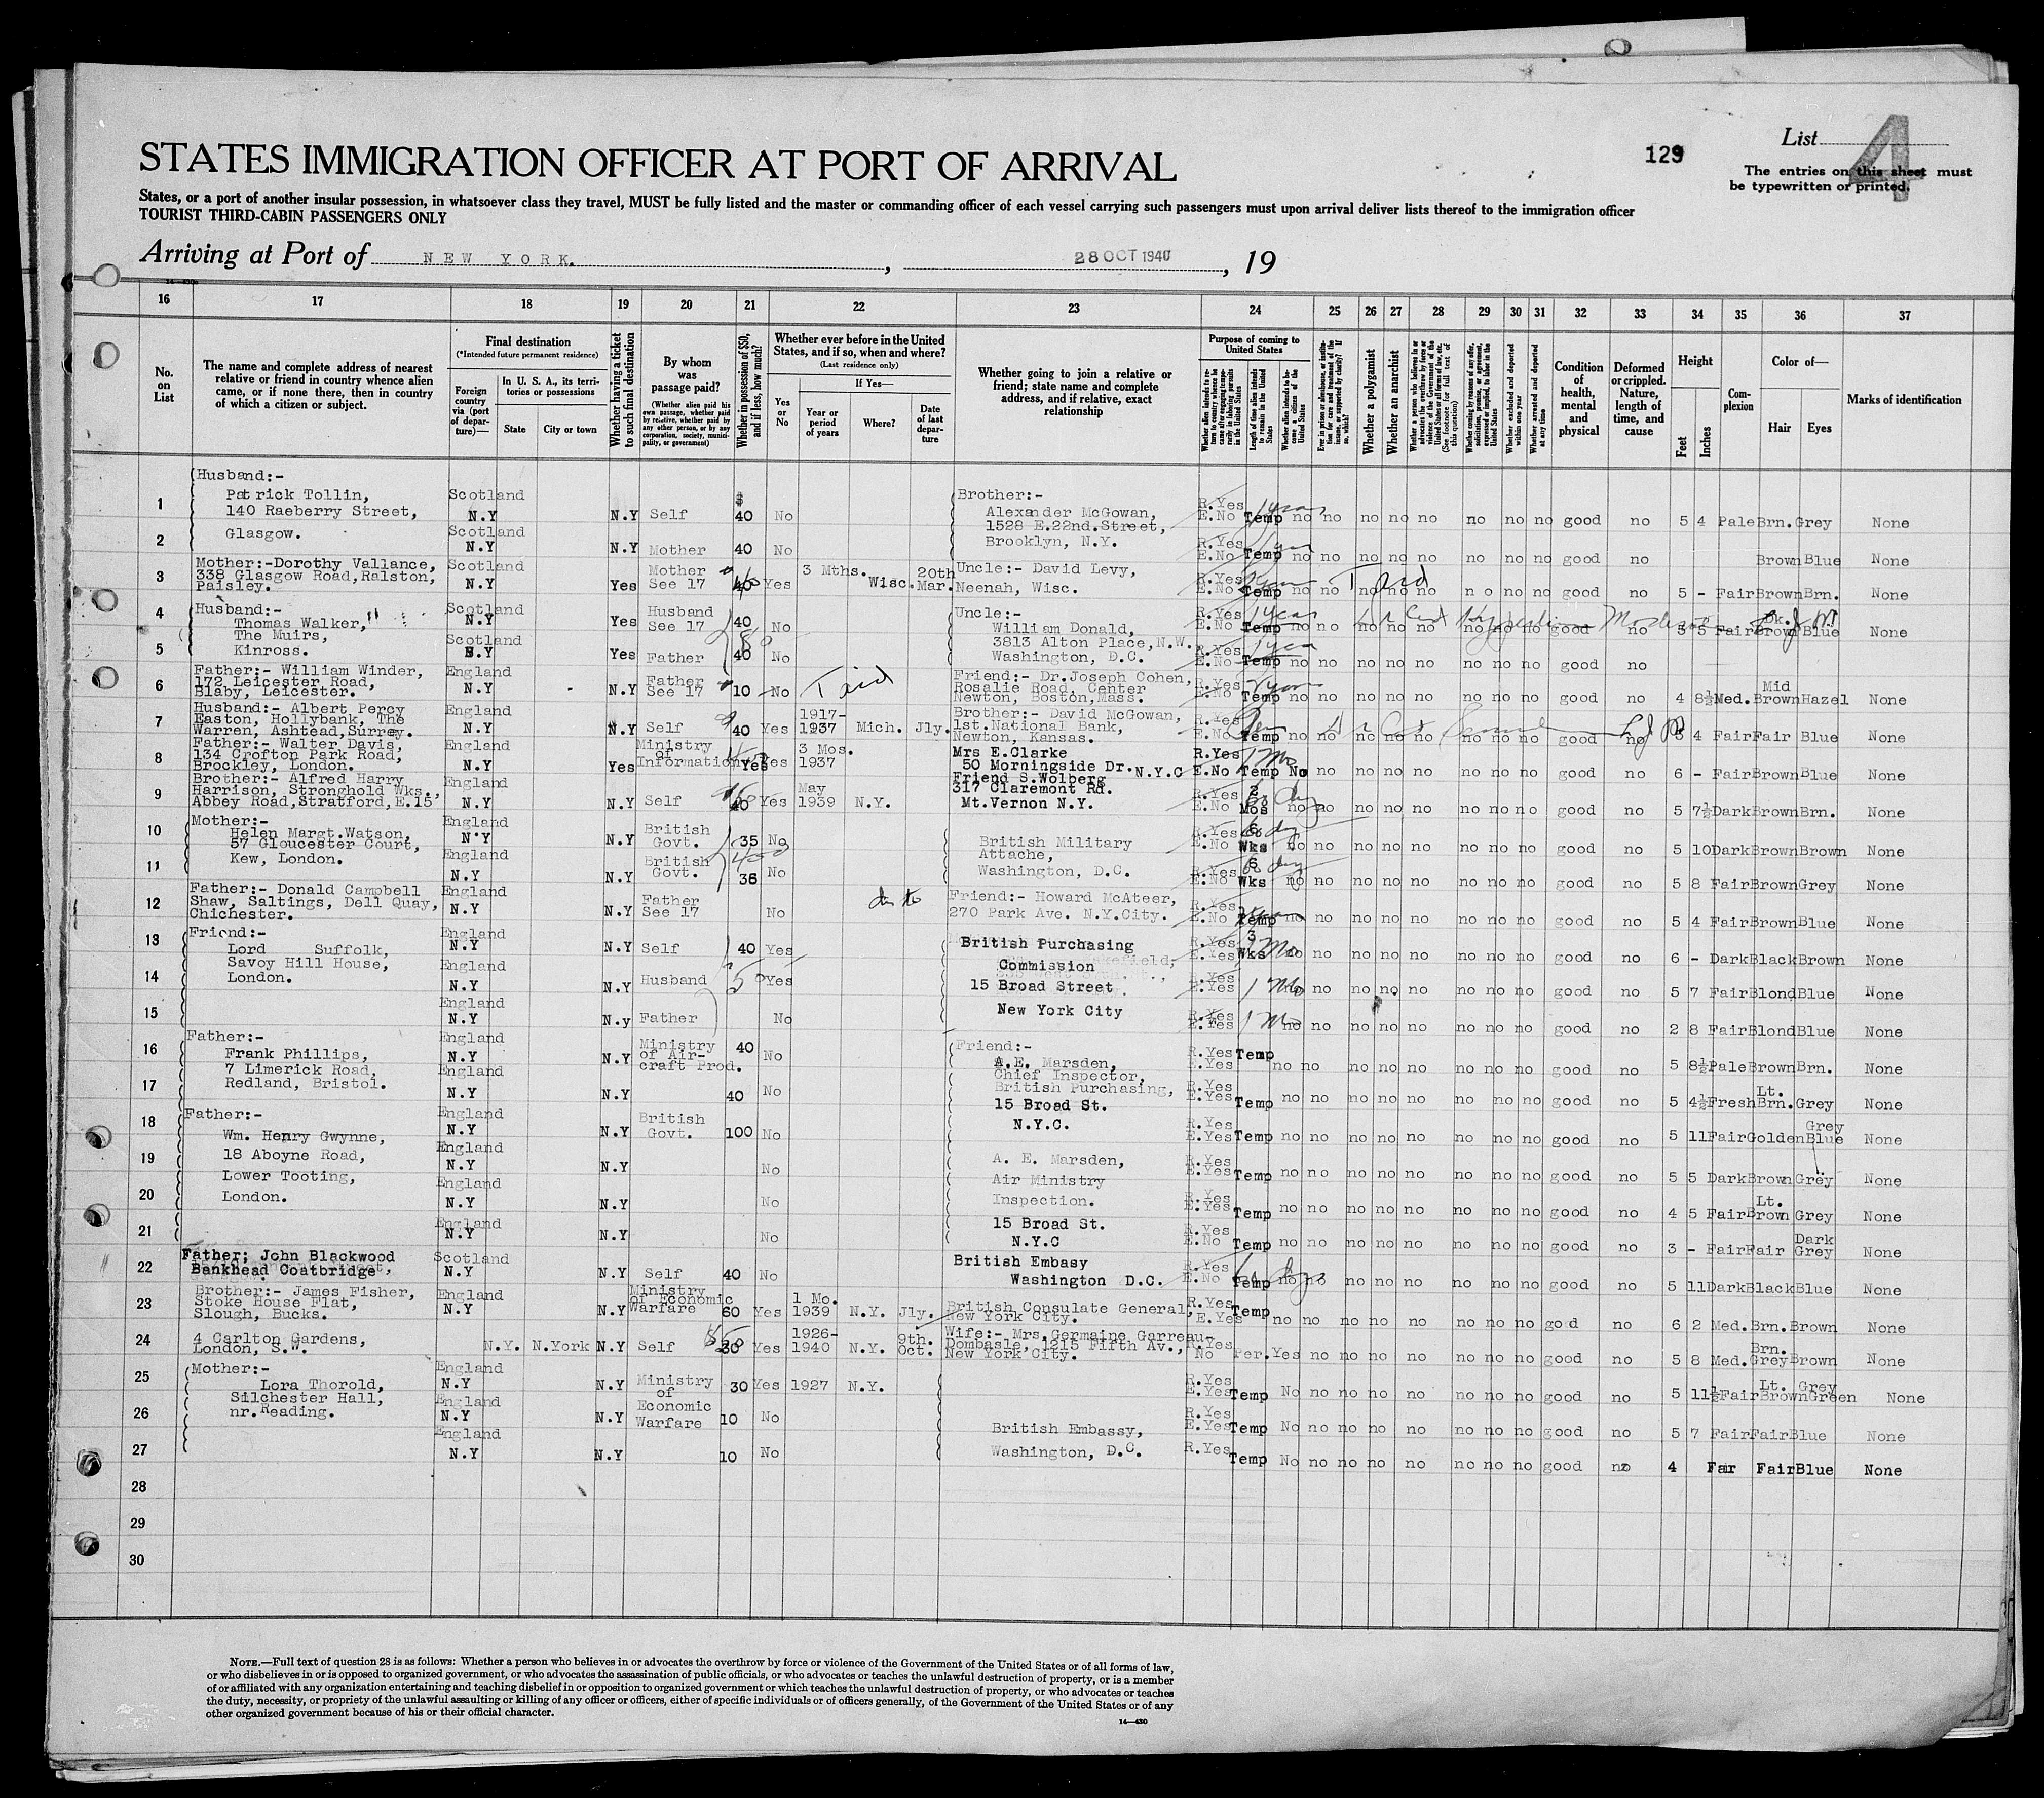 129
List 4
STATES IMMIGRATION OFFICER AT PORT OF ARRIVAL
The entries on this sheet must
be typewritten or printed.
States, or a port of another insular possession, in whatsoever class they travel, MUST be fully listed and the master or commanding officer of each vessel carrying such passengers must upon arrival deliver lists thereof to the immigration officer
TOURIST THIRD-CABIN PASSENGERS ONLY
Arriving at Port of NEW YORK. , 28 OCT 1940 , 19
16 17 18 19 20 21 22 23 24 25 26 27 28 29 30 31 32 33 34 35 36 37
No. on List
The name and complete address of nearest
relative or friend in country whence alien
came, or if none there, then in country
of which a citizen or subject.
Final destination
(*Intended future permanent residence)
Foreign country via (port of departure)—
In U. S. A., its territories or possessions
State
City or town
Whether having a ticket to such final destination
By whom was passage paid?
(Whether alien paid his own passage, whether paid by relative, whether paid by any other person, or by any corporation, society, municipality, or government)
Whether in possession of $50, and if less, how much?
Whether ever before in the United States, and if so, when and where?
(Last residence only)
Yes or No
If Yes—
Year or period of years
Where?
Date of last departure
Whether going to join a relative or
friend; state name and complete
address, and if relative, exact
relationship
Purpose of coming to United States
Whether alien intends to return to country whence he came after engaging temporarily in laboring pursuits in the United States
Length of time alien intends to remain in the United States
Whether alien intends to become a citizen of the United States
Ever in prison or almshouse, or institution for care and treatment of the insane, or supported by charity? If so, which?
Whether a polygamist
Whether an anarchist
Whether a person who believes in or advocates the overthrow by force or violence of the Government of the United States or all forms of law, etc. (See footnote for full text of this question)
Whether coming by reasons of any offer, solicitation, promise, or agreement, expressed or implied, to labor in the United States
Whether excluded and deported within one year
Whether arrested and deported at any time
Condition of health, mental and physical
Deformed or crippled. Nature, length of time, and cause
Height
Feet
Inches
Complexion
Color of—
Hair
Eyes
Marks of identification
1 Husband:- Patrick Tollin, 140 Raeberry Street, Scotland N.Y N.Y Self $ 40 No Brother:- Alexander McGowan, 1528 E.22nd.Street, R.Yes E.No Temp 1 year no no no no no no no no good no 5 4 Pale Brn. Grey None
2 Glasgow. Scotland N.Y N.Y Mother 40 No Brooklyn, N.Y. R.Yes E.No Temp no no no no no no no no good no Brown Blue None
3 Mother:-Dorothy Vallance, 338 Glasgow Road,Ralston, Paisley. Scotland N.Y Yes Mother See 17 40 Yes 3 Mths. Wisc. 20th Mar. Uncle:- David Levy, Neenah, Wisc. R.Yes E.No Temp no no no no no no no no good no 5 - Fair Brown Brn. None
4 Husband:- Thomas Walker, The Muirs, Scotland N.Y Yes Husband See 17 40 No Uncle:- William Donald, 3813 Alton Place,N.W. R.Yes E.No Temp 1 year no no no no no no no no good no 5 5 Fair Dk. Brown Blue None
5 Kinross. Scotland N.Y Yes Father 40 80 No Washington, D.C. R.Yes E.No Temp no no no no no no no no good no
6 Father:- William Winder, 172 Leicester Road, Blaby, Leicester. England N.Y N.Y Father See 17 10 No Friend:- Dr.Joseph Cohen, Rosalie Road, Center Newton, Boston,Mass. R.Yes E.No Temp no no no no no no no no good no 4 8½ Med. Mid Brown Hazel None
7 Husband:- Albert Percy Easton, Hollybank, The Warren, Ashtead,Surrey. England N.Y N.Y Self 40 Yes 1917-1937 Mich. Jly. Brother:- David McGowan, 1st.National Bank, Newton, Kansas. R.Yes E.No Temp no no no no no no no no good no 5 4 Fair Fair Blue None
8 Father:- Walter Davis, 134 Crofton Park Road, Brockley, London. England N.Y Yes Ministry of Information Yes Yes 3 Mos. 1937 Mrs E.Clarke 50 Morningside Dr.N.Y.C R.Yes E.No Temp 1 Mo No no no no no no no no good no 6 - Fair Brown Blue None
9 Brother:- Alfred Harry Harrison, Stronghold Wks., Abbey Road,Stratford,E.15 England N.Y N.Y Self 40 Yes May 1939 N.Y. Friend S.Wolberg 317 Claremont Rd. Mt.Vernon N.Y. R.Yes E.No 2 Mos no no no no no no no no good no 5 7½ Dark Brown Brn. None
10 Mother:- Helen Margt.Watson, 57 Gloucester Court, England N.Y N.Y British Govt. 35 No British Military Attache, R.Yes E.No 6 Wks no no no no no no no no good no 5 10 Dark Brown Brown None
11 Kew, London. England N.Y N.Y British Govt. 36 No Washington, D.C. R.Yes E.No 6 Wks no no no no no no no no good no 5 8 Fair Brown Grey None
12 Father:- Donald Campbell Shaw, Saltings, Dell Quay, Chichester. England N.Y N.Y Father See 17 No Friend:- Howard McAteer, 270 Park Ave. N.Y.City. R.Yes E.No Temp no no no no no no no no good no 5 4 Fair Brown Blue None
13 Friend:- Lord Suffolk, Savoy Hill House, England N.Y N.Y Self 40 Yes British Purchasing R.Yes E.Yes 3 Wks no no no no no no no no good no 6 - Dark Black Brown None
14 London. England N.Y N.Y Husband Yes Commission 15 Broad Street R.Yes E.Yes 1 Mo no no no no no no no good no 5 7 Fair Blond Blue None
15 England N.Y N.y Father No New York City R.Yes E.Yes 1 Mo no no no no no no no no good no 2 8 Fair Blond Blue None
16 Father:- Frank Phillips, 7 Limerick Road, England N.Y N.Y Ministry of Aircraft Prod. 40 No Friend:- A.E. Marsden, Chief Inspector, R.Yes E.Yes Temp no no no no no no no no good no 5 8½ Pale Brown Brn. None
17 Redland, Bristol. England N.Y N.Y 40 No British Purchasing, 15 Broad St. R.Yes E.Yes Temp no no no no no no no no good no 5 4½ Fresh Lt. Brn. Grey None
18 Father:- Wm. Henry Gwynne, England N.Y N.Y British Govt. 100 No N.Y.C. R.Yes E.Yes Temp no no no no no no no no good no 5 11 Fair Golden Grey Blue None
19 18 Aboyne Road, England N.Y N.Y No A. E. Marsden, R.Yes E.Yes Temp no no no no no no no no good no 5 5 Dark Brown Grey None
20 Lower Tooting, London. England N.Y N.Y No Air Ministry Inspection. R.Yes E.Yes Temp no no no no no no no no good no 4 5 Fair Lt. Brown Grey None
21 England N.Y N.Y No 15 Broad St. N.Y.C R.Yes E.No Temp no no no no no no no no good no 3 - Fair Fair Dark Grey None
22 Father; John Blackwood Bankhead Coatbridge Scotland N.Y N.Y Self 40 No British Embasy Washington D.C. R.Yes E.No Temp no no no no no no no no good no 5 11 Dark Black Blue None
23 Brother:- James Fisher, Stoke House Flat, Slough, Bucks. England N.Y N.Y Ministry of Economic Warfare 60 Yes 1 Mo. 1939 N.Y. Jly. British Consulate General, New York City. R.Yes E.Yes Temp no no no no no no no no good no 6 2 Med. Brn. Brown None
24 4 Carlton Gardens, London, S.W. N.Y. N.York N.Y Self 30 Yes 1926-1940 N.Y. 9th. Oct. Wife:- Mrs.Germaine Garreau-Dombasle, 1215 Fifth Av., New York City. R.Yes No Per. Yes no no no no no no no good no 5 8 Med. Brn. Grey Brown None
25 Mother:- Lora Thorold, England N.Y N.Y Ministry of 30 Yes 1927 N.Y. R.Yes E.Yes Temp No no no no no no no no good no 5 11½ Fair Lt. Brown Grey Green None
26 Silchester Hall, nr.Reading. England N.Y N.Y Economic Warfare 10 No British Embassy, R.Yes E.Yes Temp No no no no no no no no good no 5 7 Fair Fair Blue None
27 England N.Y N.Y 10 No Washington, D.C. R.Yes Temp No no no no no no no no good no 4 Fair Fair Blue None
28
29
30
NOTE.—Full text of question 28 is as follows: Whether a person who believes in or advocates the overthrow by force or violence of the Government of the United States or of all forms of law,
or who disbelieves in or is opposed to organized government, or who advocates the assassination of public officials, or who advocates or teaches the unlawful destruction of property, or is a member
of or affiliated with any organization entertaining and teaching disbelief in or opposition to organized government or which teaches the unlawful destruction of property, or who advocates or teaches
the duty, necessity, or propriety of the unlawful assaulting or killing of any officer or officers, either of specific individuals or of officers generally, of the Government of the United States or of any
other organized government because of his or their official character.
14—430